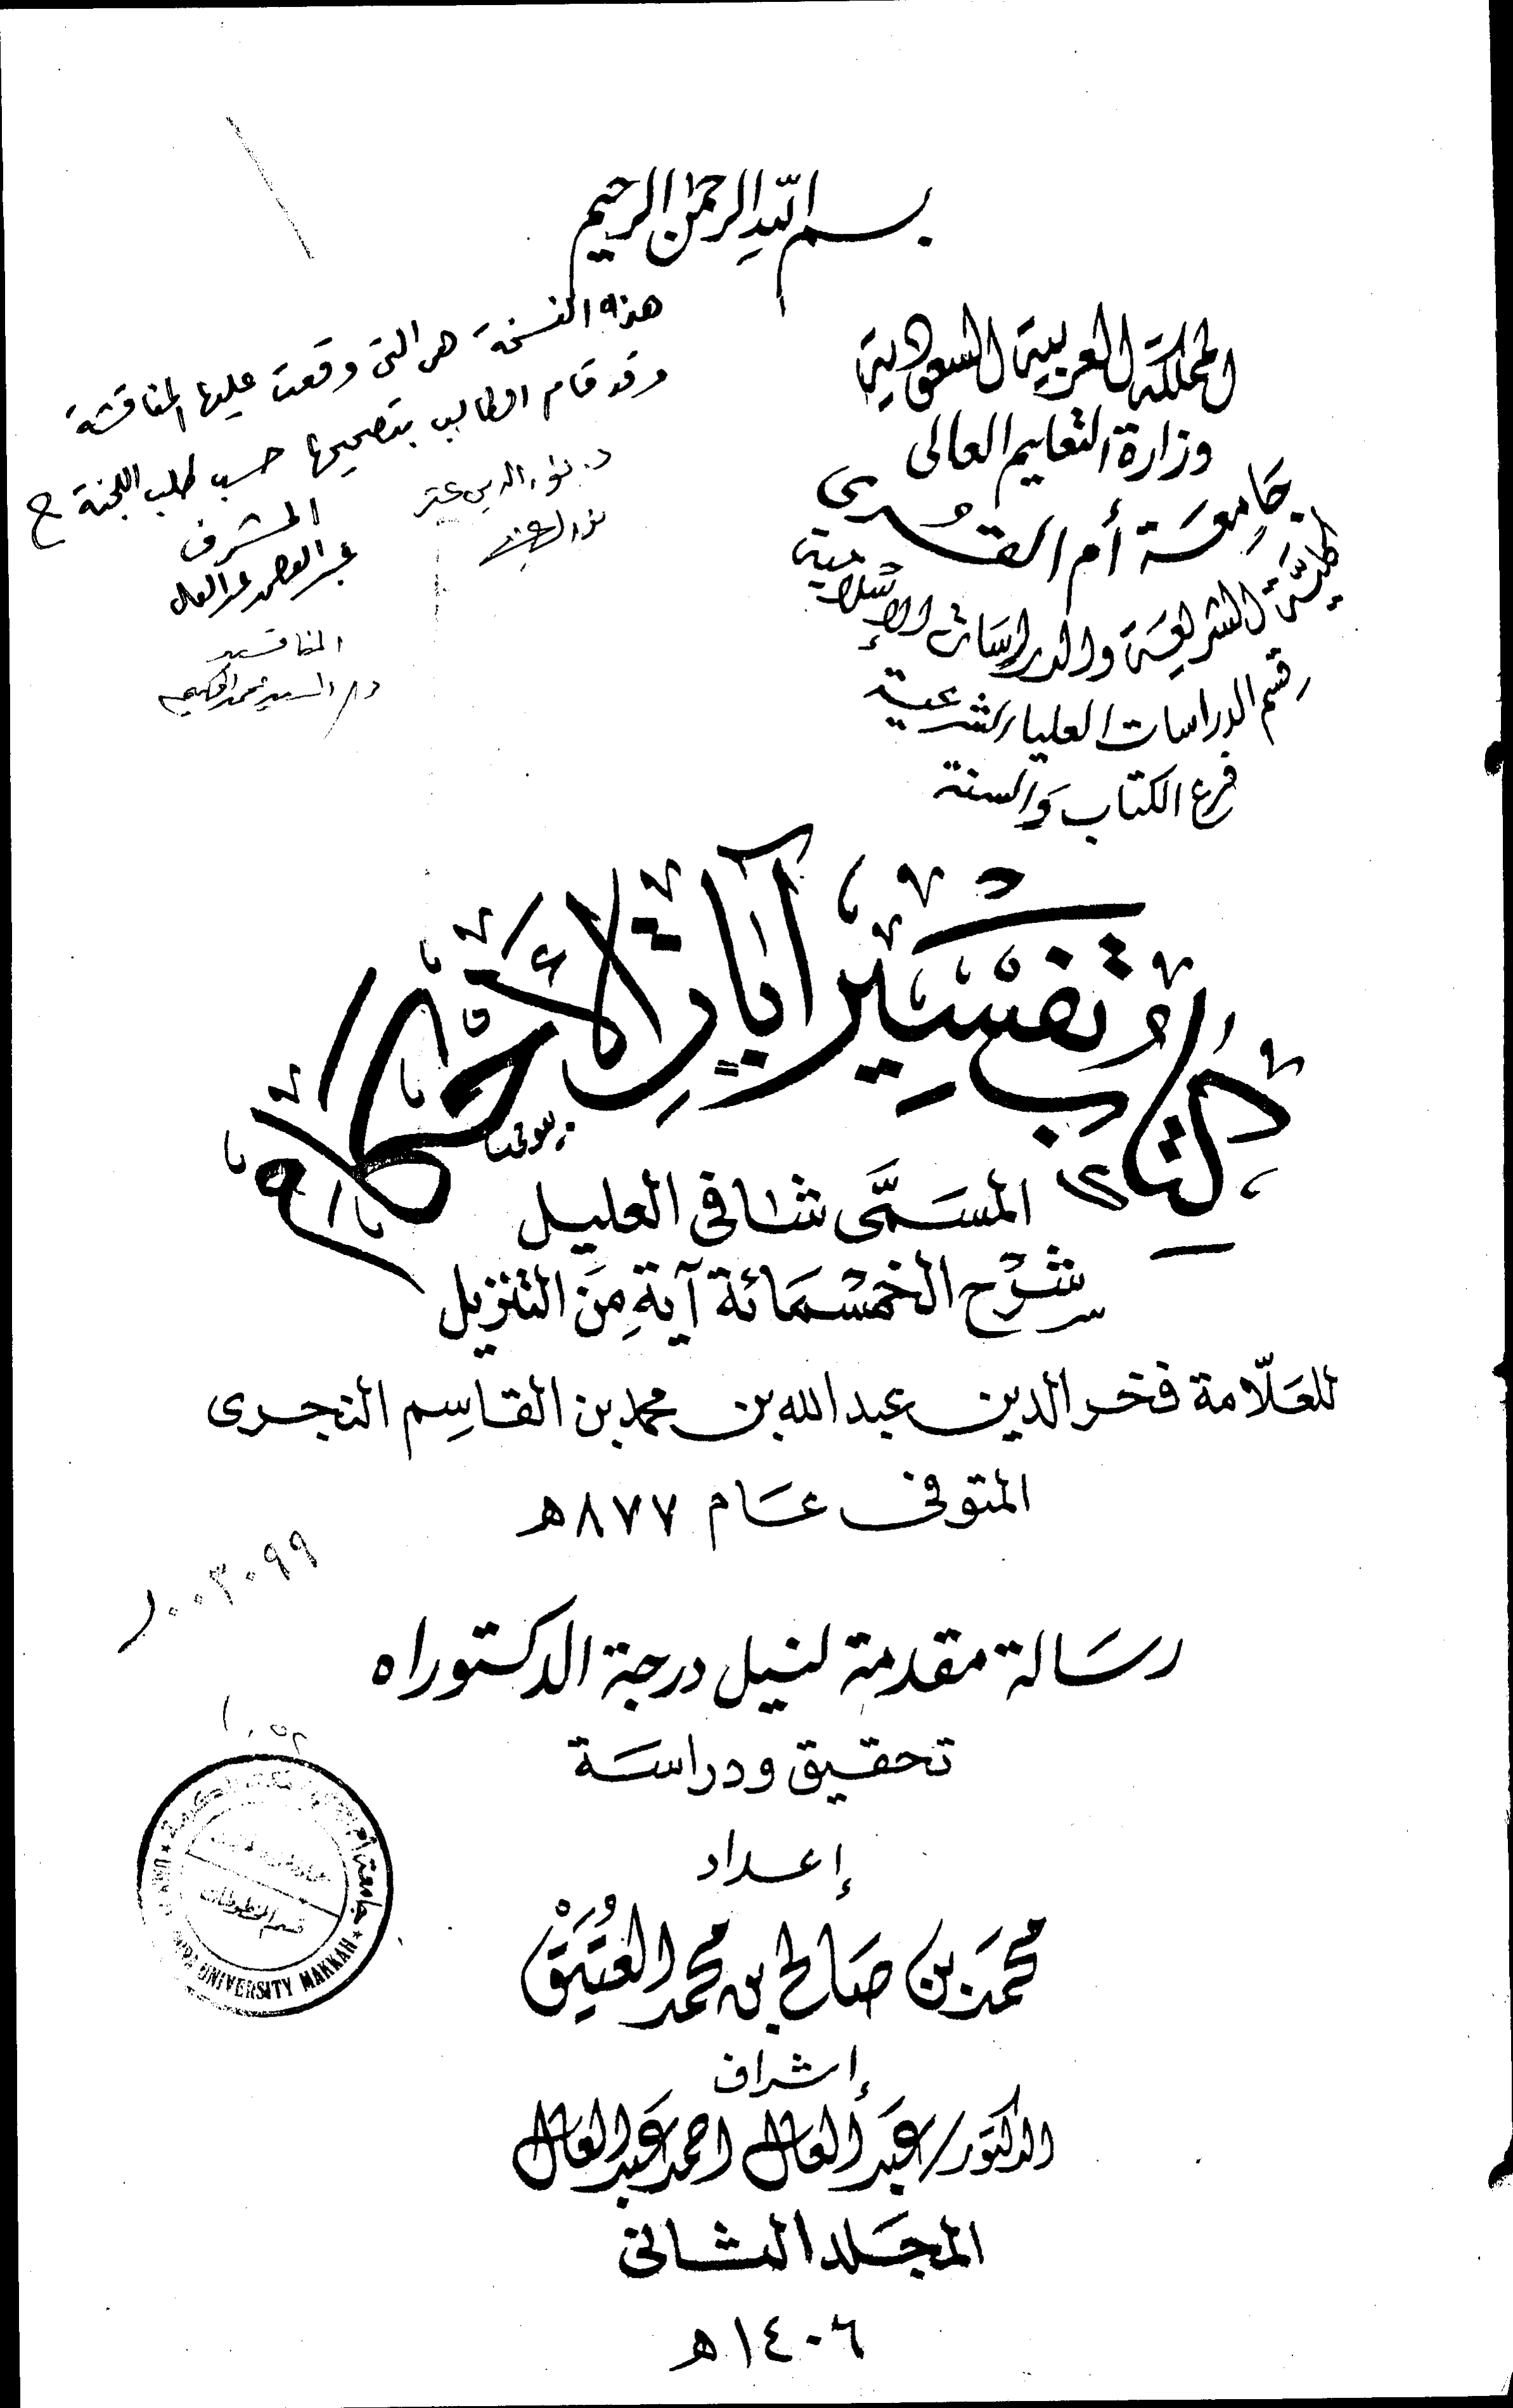 بسم الله الرحمن الرحيم
المملكة العربية السعودية
وزارة التعليم العالى
جَامِعَة أم القُرى
كليَّة الشريعَة والدراسَات الإسْلامية
قسم الدراسات العليا الشرعية
فرع الكتاب وَالسنة
هذه النسخة هى التى وقعت عليها المناقشة
وقد قام الطالب بتصحيحها حسب طلب اللجنة
د. نور الدين عتر
المشرف
عبد العال
المناقش
د/ السيد محمد الحكيم
كتاب تفسير آيات الأحكام
المسَمَّى شافى العليل
شرْح الخمْسمَائة آيةٍ مِنَ التنزيل
للعَلّامة فخر الدين عبد الله بن محمد بن القاسِم النجرى
المتوفى عَام ٨٧٧ه
١٠٠٣٠٩٩
رسَالة مقدمة لنيل درجة الدكتوراه
١٠٥٢
تحقيق ودراسَة
إعداد
محمَد بن صَالح بن محمد العُتَيَقْ
إشراف
الدكتور/ عَبد العال احمد عَبد العال
المجَلد الثانى
١٤٠٦ه
جامعة أم القرى
قسم المخطوطات
UNIVERSITY MAKKAH